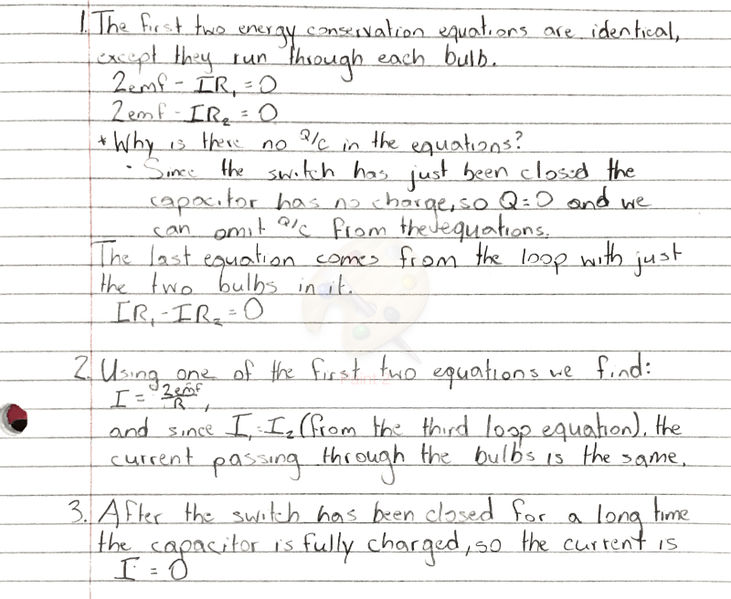 1. The first two energy conservation equations are identical,
except they run through each bulb.
2emf - IR₁ = 0
2emf - IR₂ = 0
* Why is there no Q/C in the equations?
· Since the switch has just been closed the
capacitor has no charge, so Q=0 and we
can omit Q/C from the equations.
The last equation comes from the loop with just
the two bulbs in it.
IR₁ - IR₂ = 0
2. Using one of the first two equations we find:
I = 2emf/R,
and since I₁=I₂ (from the third loop equation). the
current passing through the bulbs is the same.
3. After the switch has been closed for a long time
the capacitor is fully charged, so the current is
I = 0